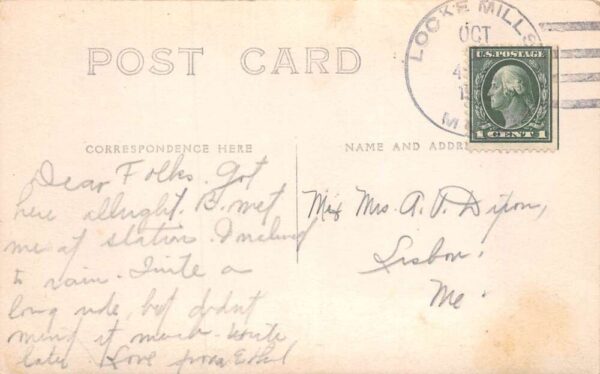 LOCKE MILLS
OCT
4
M
U.S. POSTAGE
1 CENT 1
POST CARD
CORRESPONDENCE HERE
NAME AND ADDRE
Dear Folks. Got
here allright. B. met
me at station. Inclined
to rain. Quite a
long ride, but didnt
mind it much. Write
later Love from Ethel
Mrs. A. P.
Lisbon.
Me.